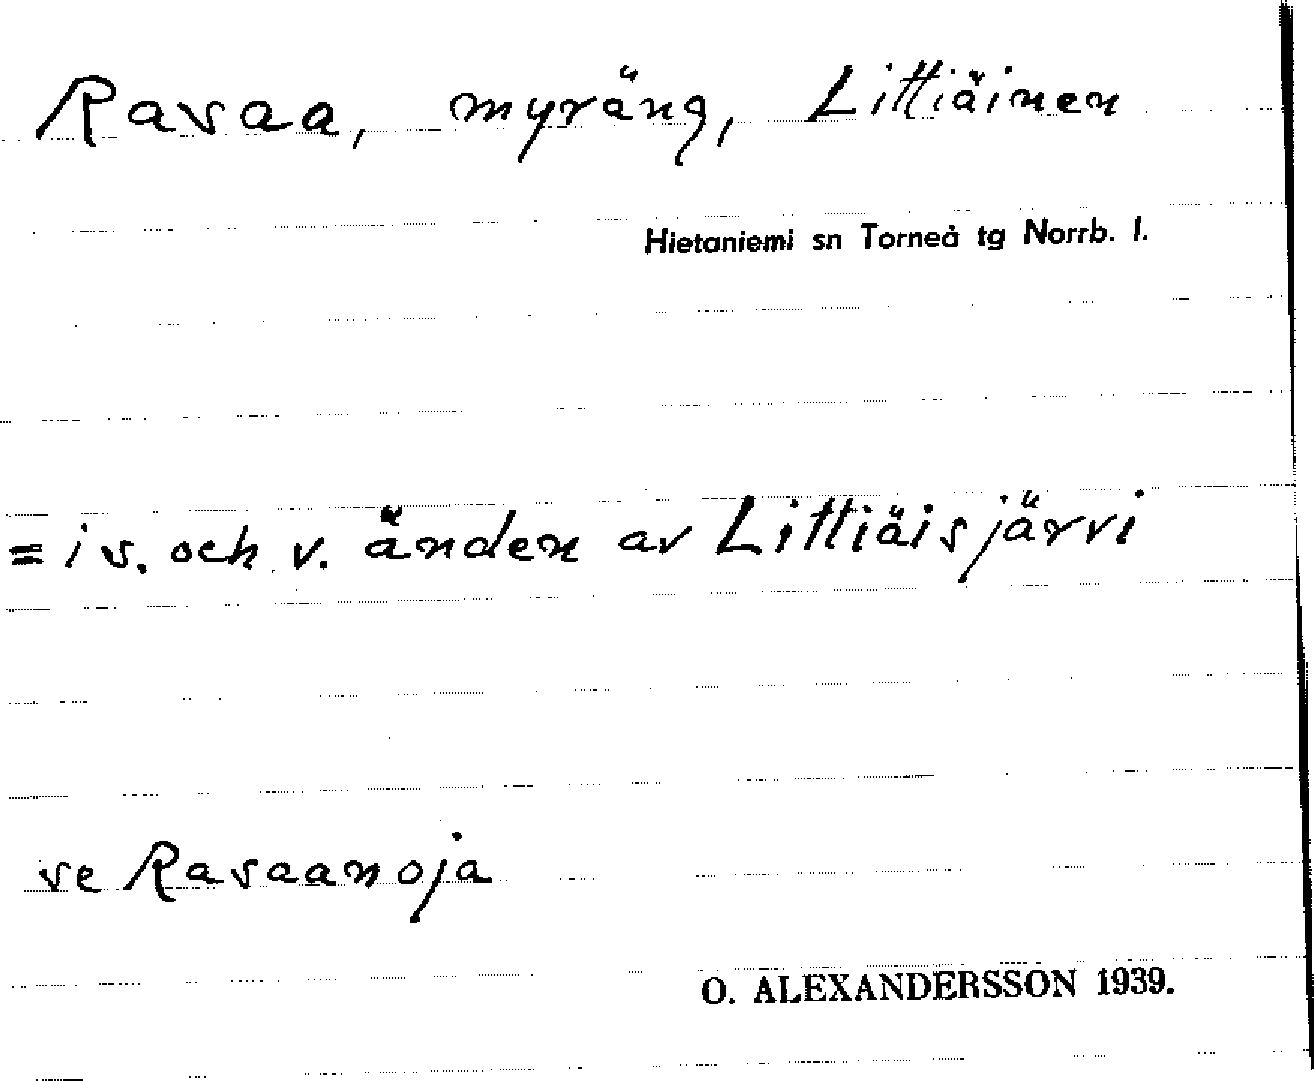 Rasaa, myräng, Littiäinen
Hietaniemi sn Torneå tg Norrb. l.
= i s. och v. änden av Littiäisjärvi
se Rasaanoja
O. ALEXANDERSSON 1939.